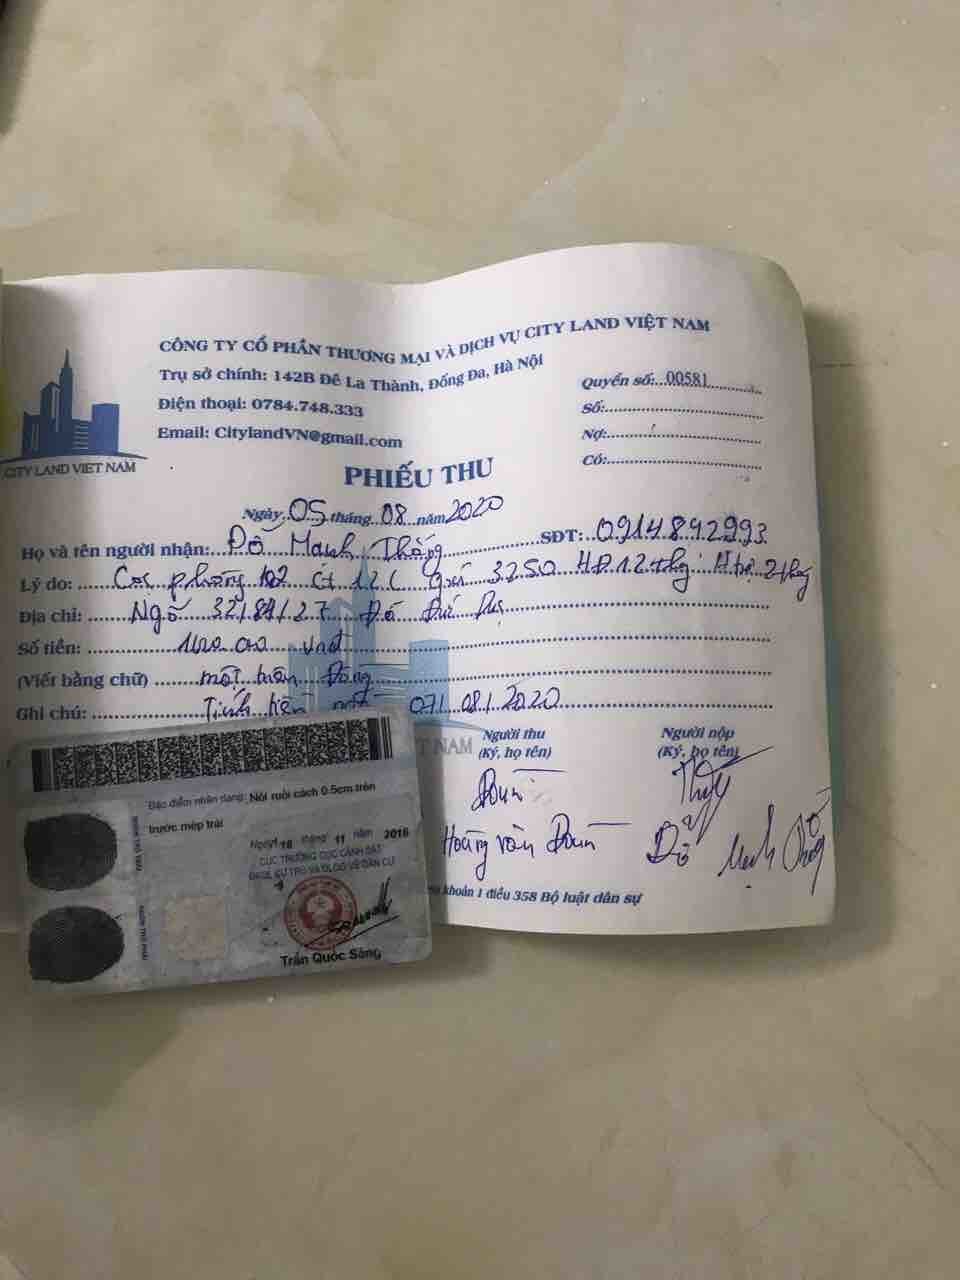 CÔNG TY CỔ PHẦN THƯƠNG MẠI VÀ DỊCH VỤ CITY LAND VIỆT NAM
Trụ sở chính: 142B Đê La Thành, Đống Đa, Hà Nội
Điện thoại: 0784.748.333
Email: CitylandVN@gmail.com
Quyển số:..00581
Số:
Nợ:
Có:
CITY LAND VIET NAM
PHIẾU THU
Ngày 05 tháng 08 năm 2020
Họ và tên người nhận: Đỗ Mạnh Thắng SĐT: 0914892993
Lý do: Cọc phòng 102 12C giá 3250 HĐ 12 thg 2 thg
Địa chỉ: Ngõ 32/84/27 Đỗ Đức Dục
Số tiền: vnđ
(Viết bằng chữ) một triệu Đồng
Ghi chú: Tính tiền 07/08/2020
T NAM
Người thu
(Ký, họ tên)
Người nộp
(Ký, họ tên)
Hoàng văn
Đỗ Mạnh Thắng
khoản 1 điều 358 Bộ luật dân sự
Đặc điểm nhân dạng: Nốt ruồi cách 0.5cm trên
trước mép trái
Ngày 16 tháng 11 năm 2016
CỤC TRƯỞNG CỤC CẢNH SÁT
ĐKQL CƯ TRÚ VÀ DLQG VỀ DÂN CƯ
NGÓN TRỎ TRÁI
NGÓN TRỎ PHẢI
Trần Quốc Sáng